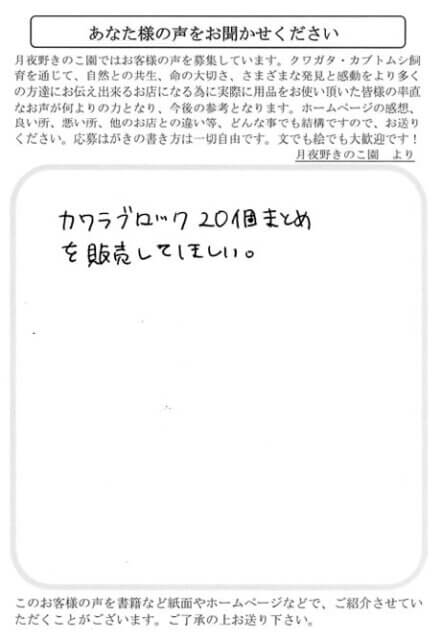 あなた様の声をお聞かせください
月夜野きのこ園ではお客様の声を募集しています。クワガタ・カブトムシ飼
育を通じて、自然との共生、命の大切さ、さまざまな発見と感動をより多く
の方達にお伝え出来るお店になる為に実際に用品をお使い頂いた皆様の率直
なお声が何よりの力となり、今後の参考となります。ホームページの感想、
良い所、悪い所、他のお店との違い等、どんな事でも結構ですので、お送り
ください。応募はがきの書き方は一切自由です。文でも絵でも大歓迎です！
月夜野きのこ園　より
カワラブロック20個まとめ
を販売してほしい。
このお客様の声を書籍など紙面やホームページなどで、ご紹介させてい
ただくことがございます。ご了承の上お送り下さい。